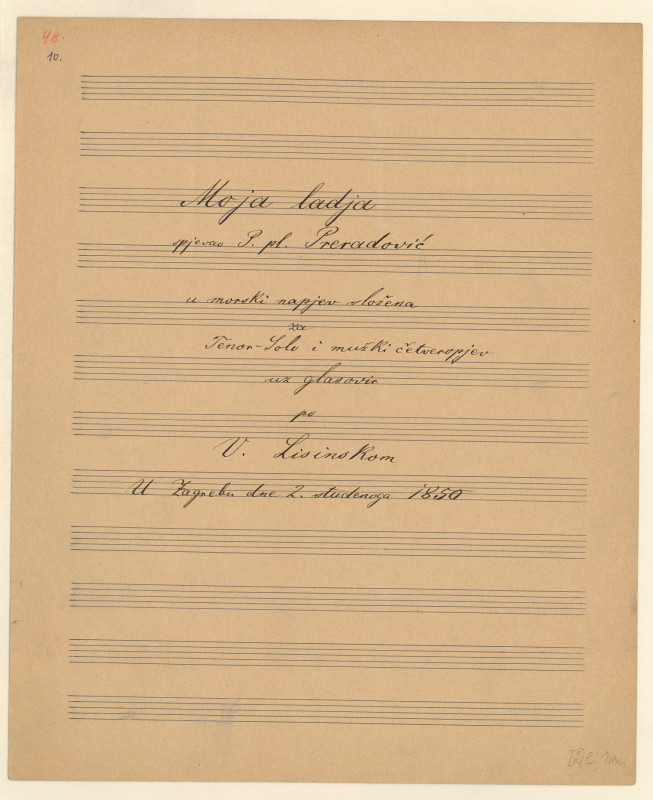 48.
10.
Moja ladja
spjevao P. pl. Preradović
u morski napjev složena
za
Tenor-Solo i mužki četveropjev
uz glasovir
po
V. Lisinskom
U Zagrebu dne 2. studenoga 1850